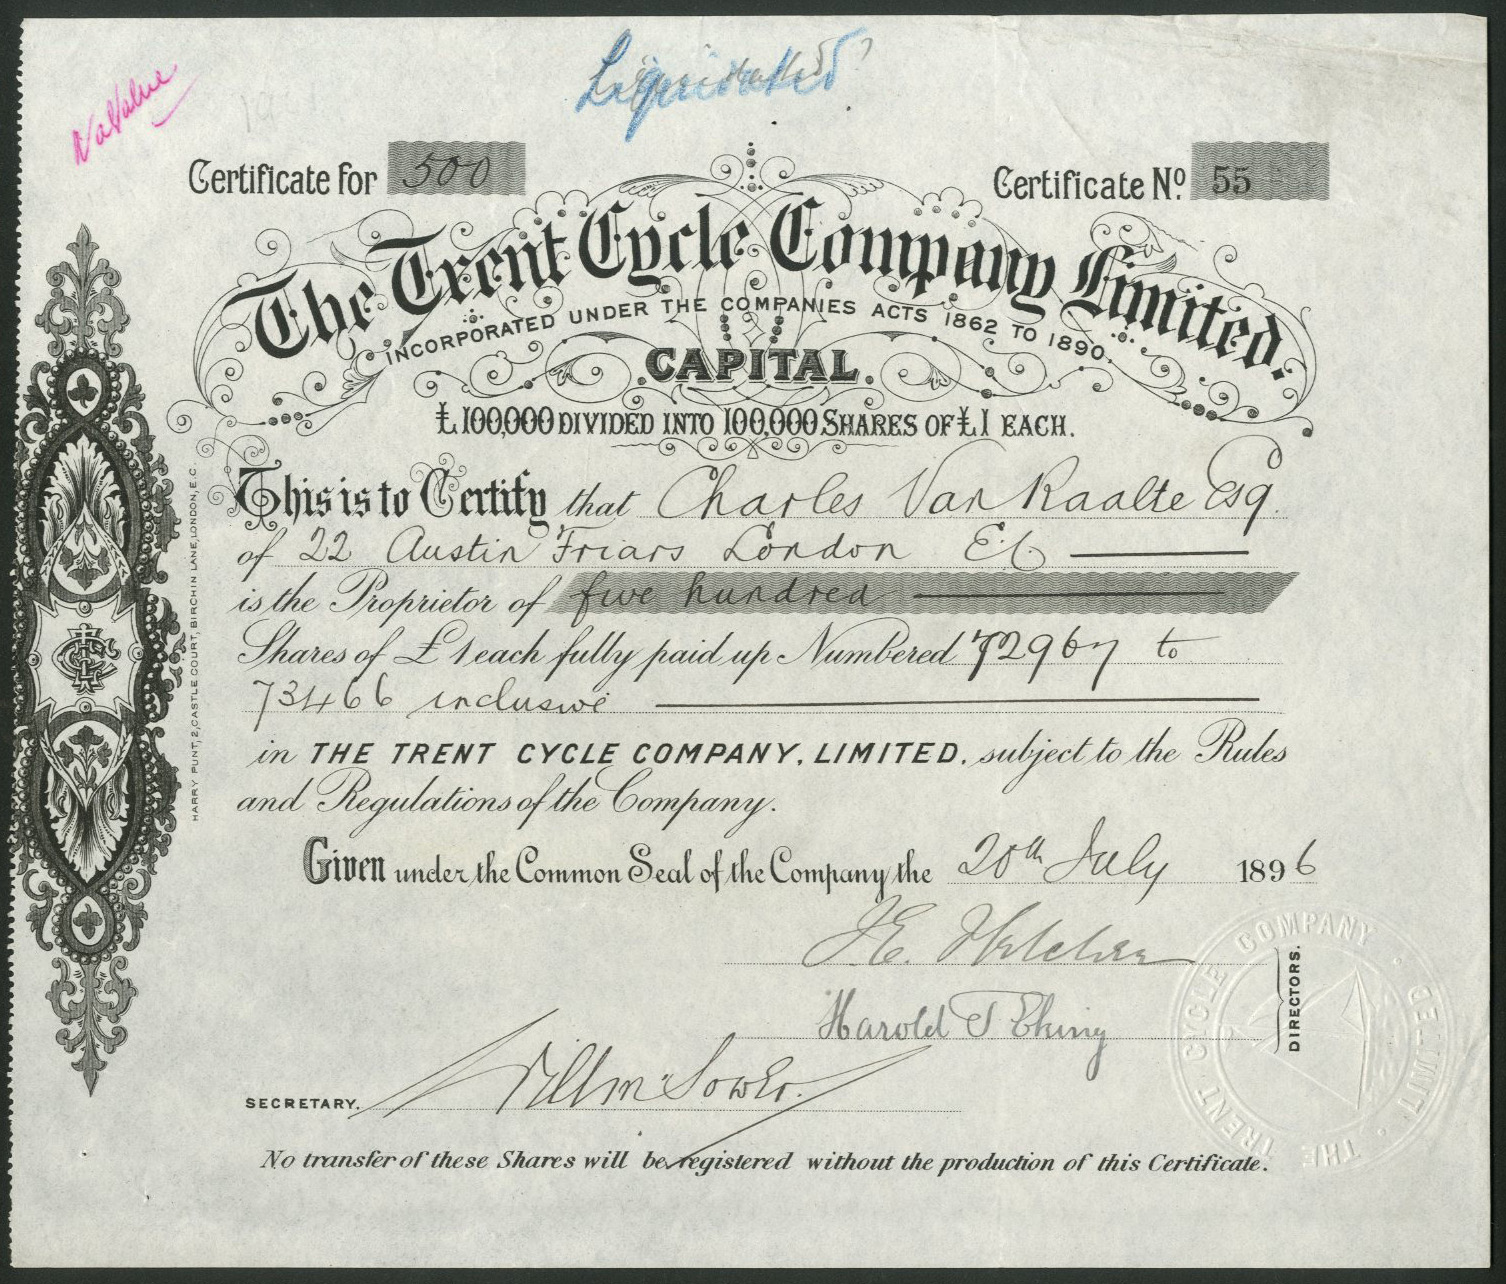 Liquidated
No Value
Certificate for 500
Certificate No. 55
The Trent Cycle Company Limited.
INCORPORATED UNDER THE COMPANIES ACTS 1862 TO 1890.
CAPITAL.
£100,000 DIVIDED INTO 100,000 SHARES OF £1 EACH.
This is to Certify that Charles Van Raalte Esq.
of 22 Austin Friars London E.C.
is the Proprietor of five hundred
Shares of £1 each fully paid up Numbered 72967 to
73466 inclusive
in THE TRENT CYCLE COMPANY, LIMITED, subject to the Rules
and Regulations of the Company.
Given under the Common Seal of the Company the 20th July 1896
J. E.
Harold T
DIRECTORS.
SECRETARY.
No transfer of these Shares will be registered without the production of this Certificate.
HARRY PUNT, 2, CASTLE COURT, BIRCHIN LANE, LONDON, E.C.
THE TRENT CYCLE COMPANY LIMITED